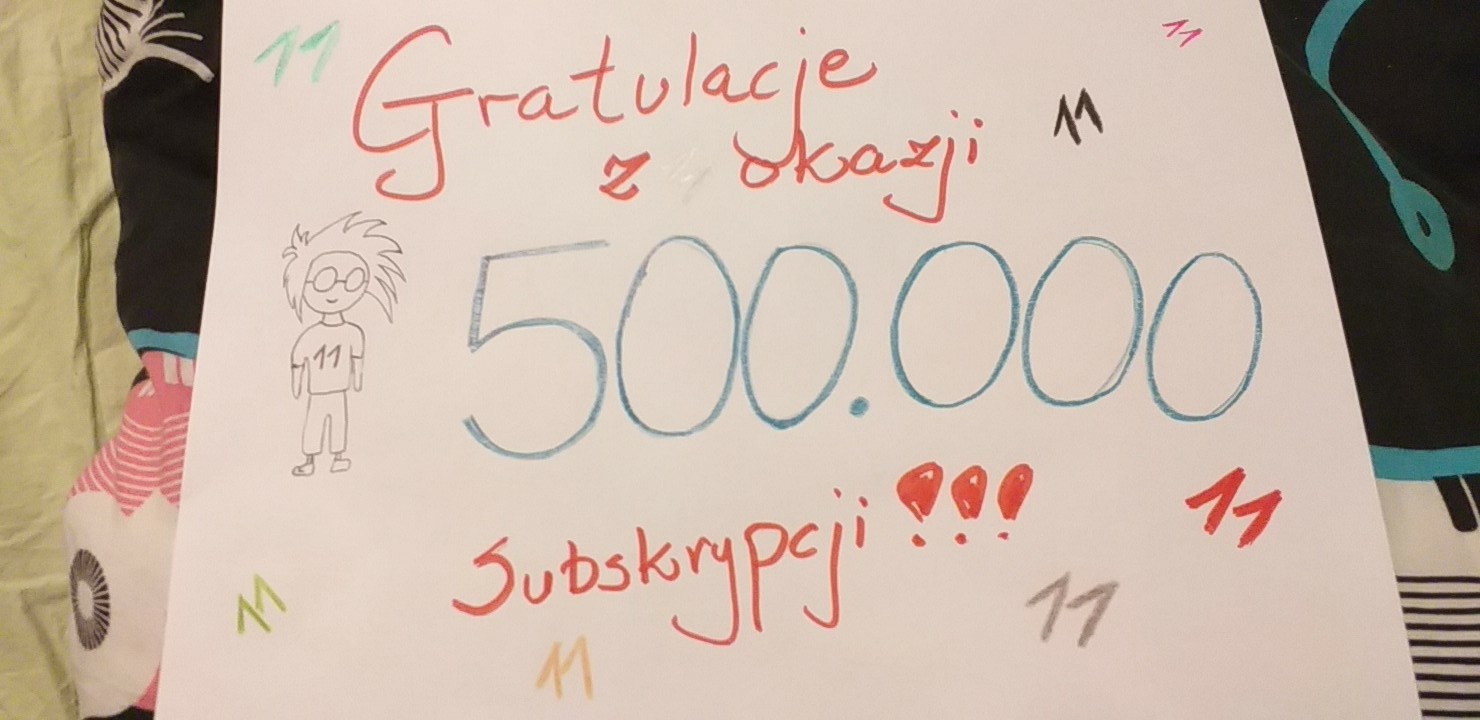 11
11
Gratulacje
11
z okazji
500.000
11
Subskrypcji !!!
11
11
11
11